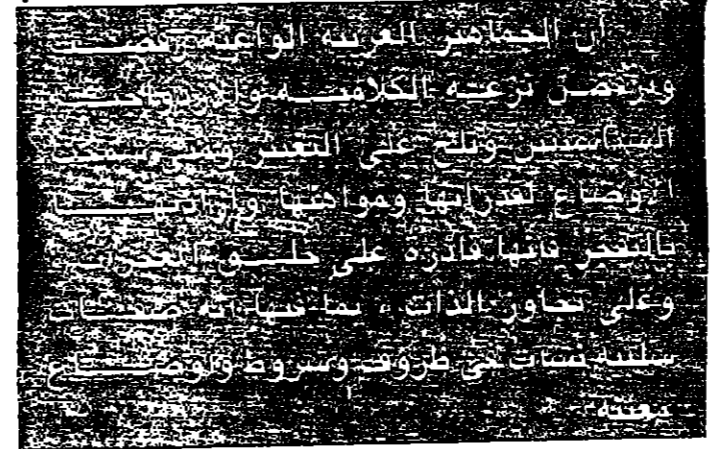 ان الجماهير العربية الواعية رفضت
وترفض نزعة الكلامية والازدواجية
السياسيتين وتلح على التغيير
الاوضاع لقدراتها ومواهبها وارادتها
بالتغيير فانها قادرة على خلق
وعلى تجاوز الذات ، بما فيها اية صفات
سلبية نشأت في ظروف وشروط واوضاع
معينة